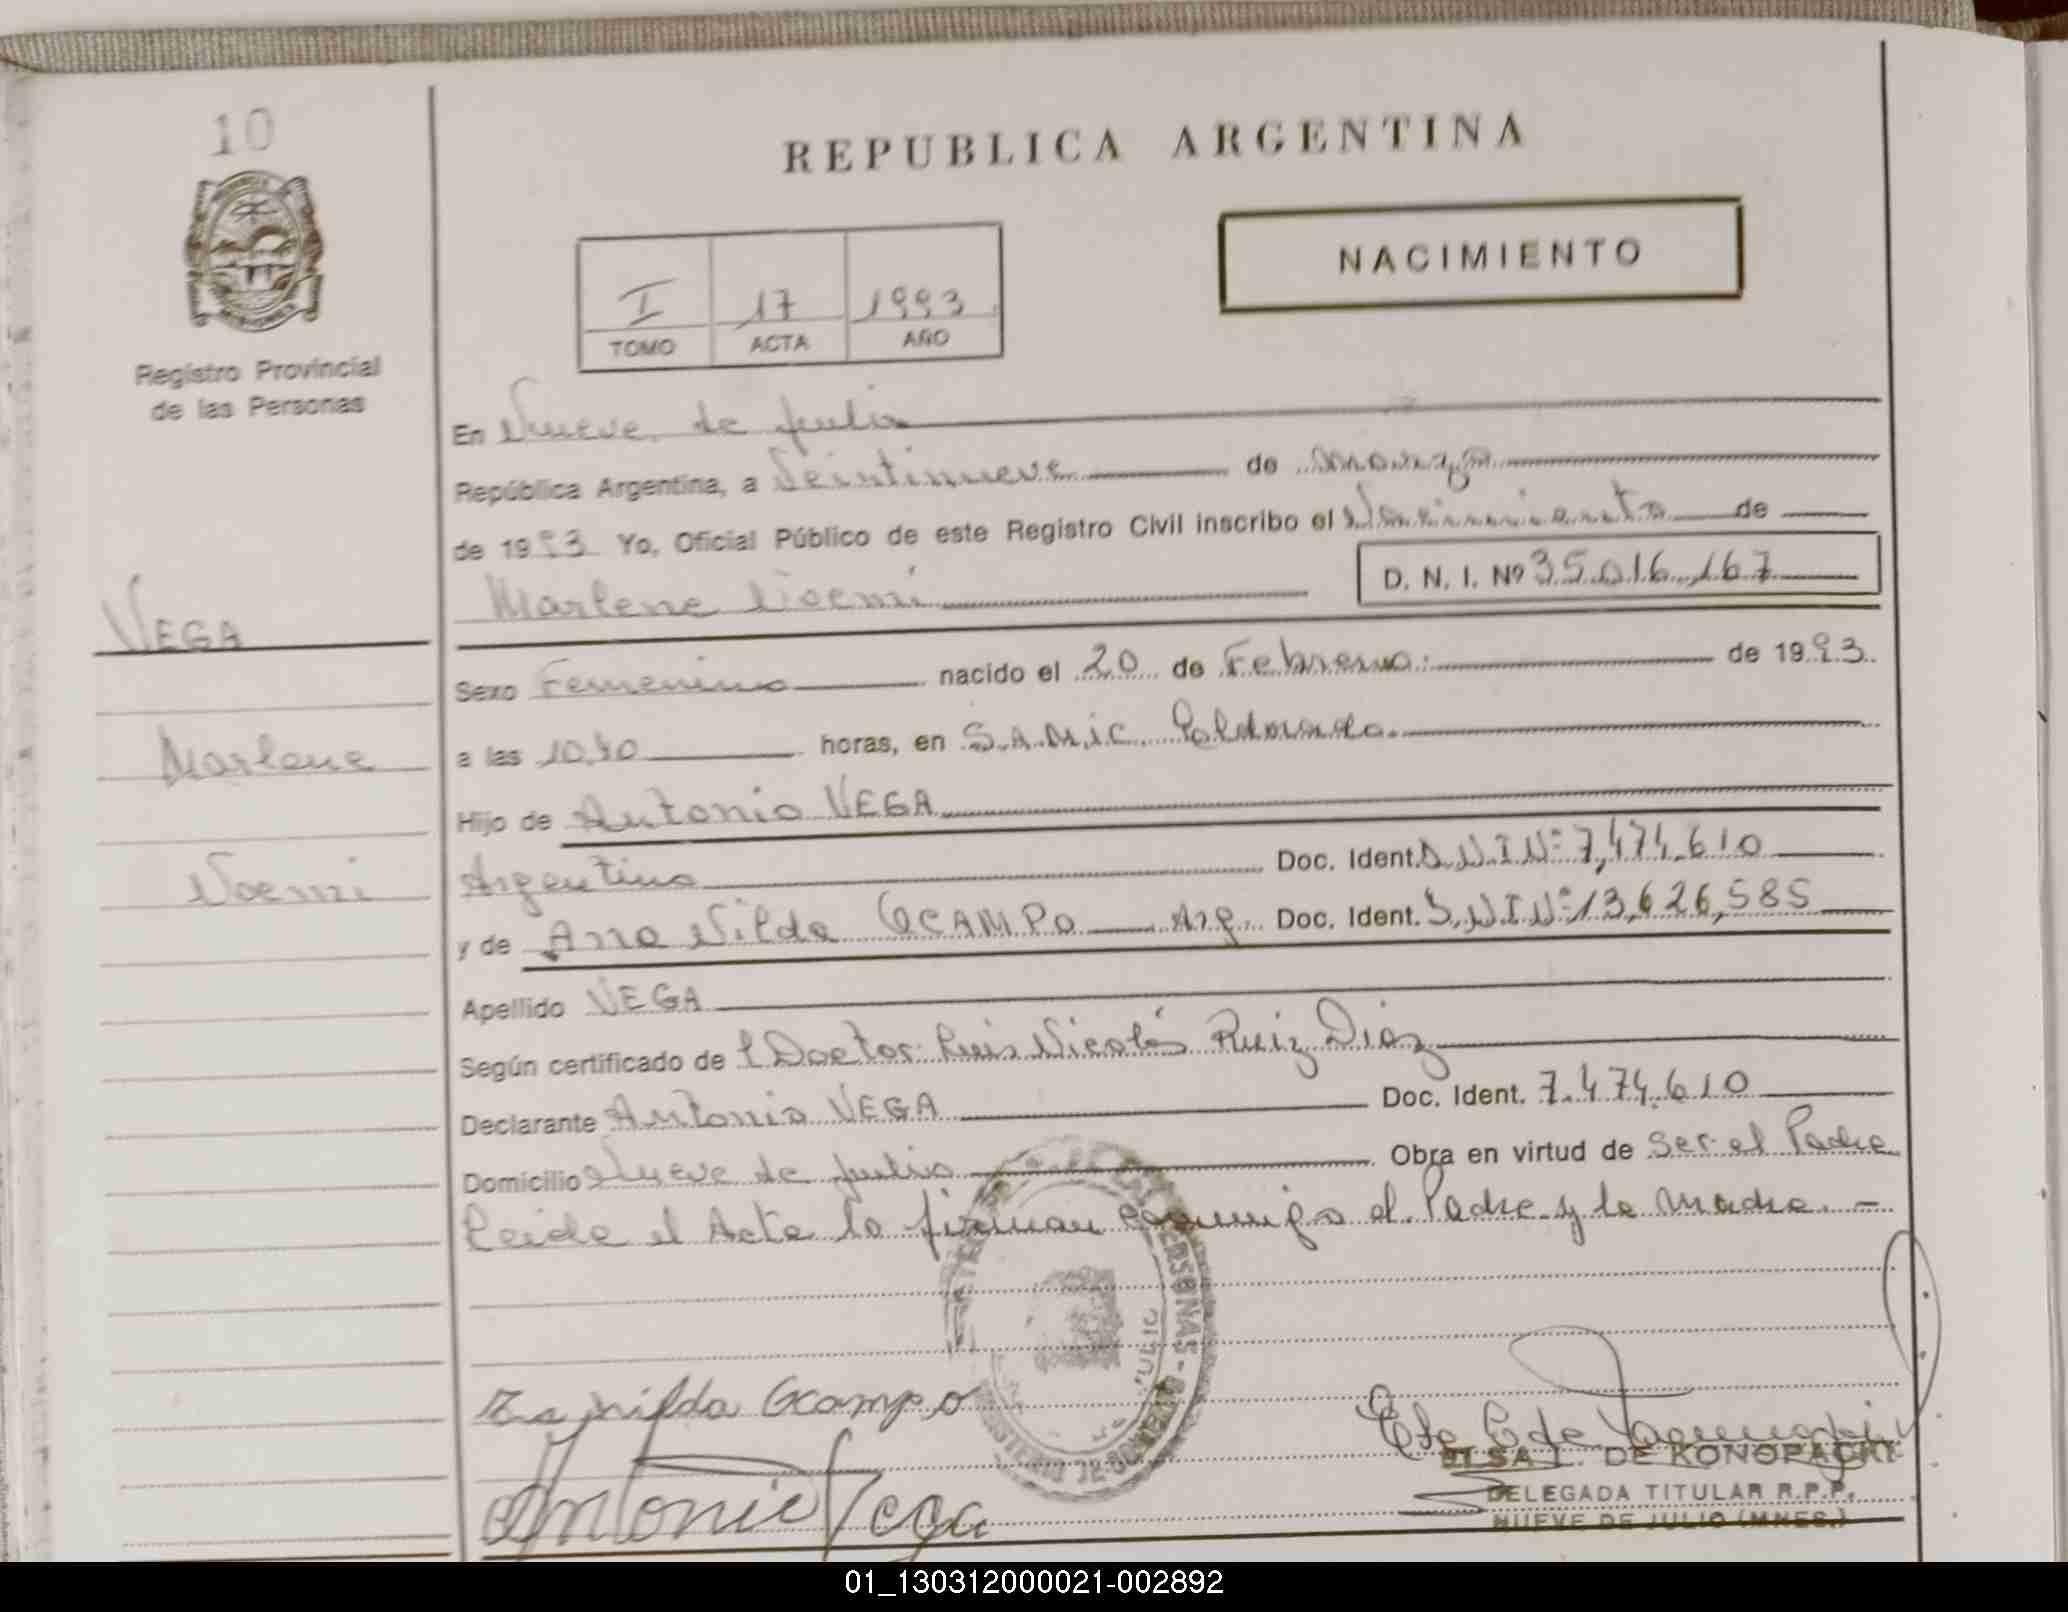 10
REPUBLICA ARGENTINA
NACIMIENTO
I 17 1993
TOMO ACTA AÑO
Registro Provincial
de las Personas
En Nueve de Julio
República Argentina, a Veintinueve de marzo
de 1993 Yo, Oficial Público de este Registro Civil inscribo el Nacimiento de
Marlene Noemi D. N. I. Nº 35.016.167
VEGA
Marlene
Noemi
Sexo Femenino nacido el 20 de Febrero de 1993
a las horas, en S.A.M.I.C. Eldorado
Hijo de Antonio VEGA
Argentino Doc. Ident. D.N.I Nº 7,474,610
y de Ana Nilda OCAMPO Arg. Doc. Ident. D.N.I Nº 13,626,585
Apellido VEGA
Según certificado de l Doctor Luis Nicolás Ruiz Diaz
Declarante Antonio VEGA Doc. Ident. 7.474.610
Domicilio Nueve de Julio Obra en virtud de Ser el Padre
Leida el Acta la firman conmigo el Padre y la Madre. -
nilda Ocampo
Antonio Vega
ELSA L. DE KONOPACKI
DELEGADA TITULAR R.P.P.
NUEVE DE JULIO (MNES.)
01_130312000021-002892